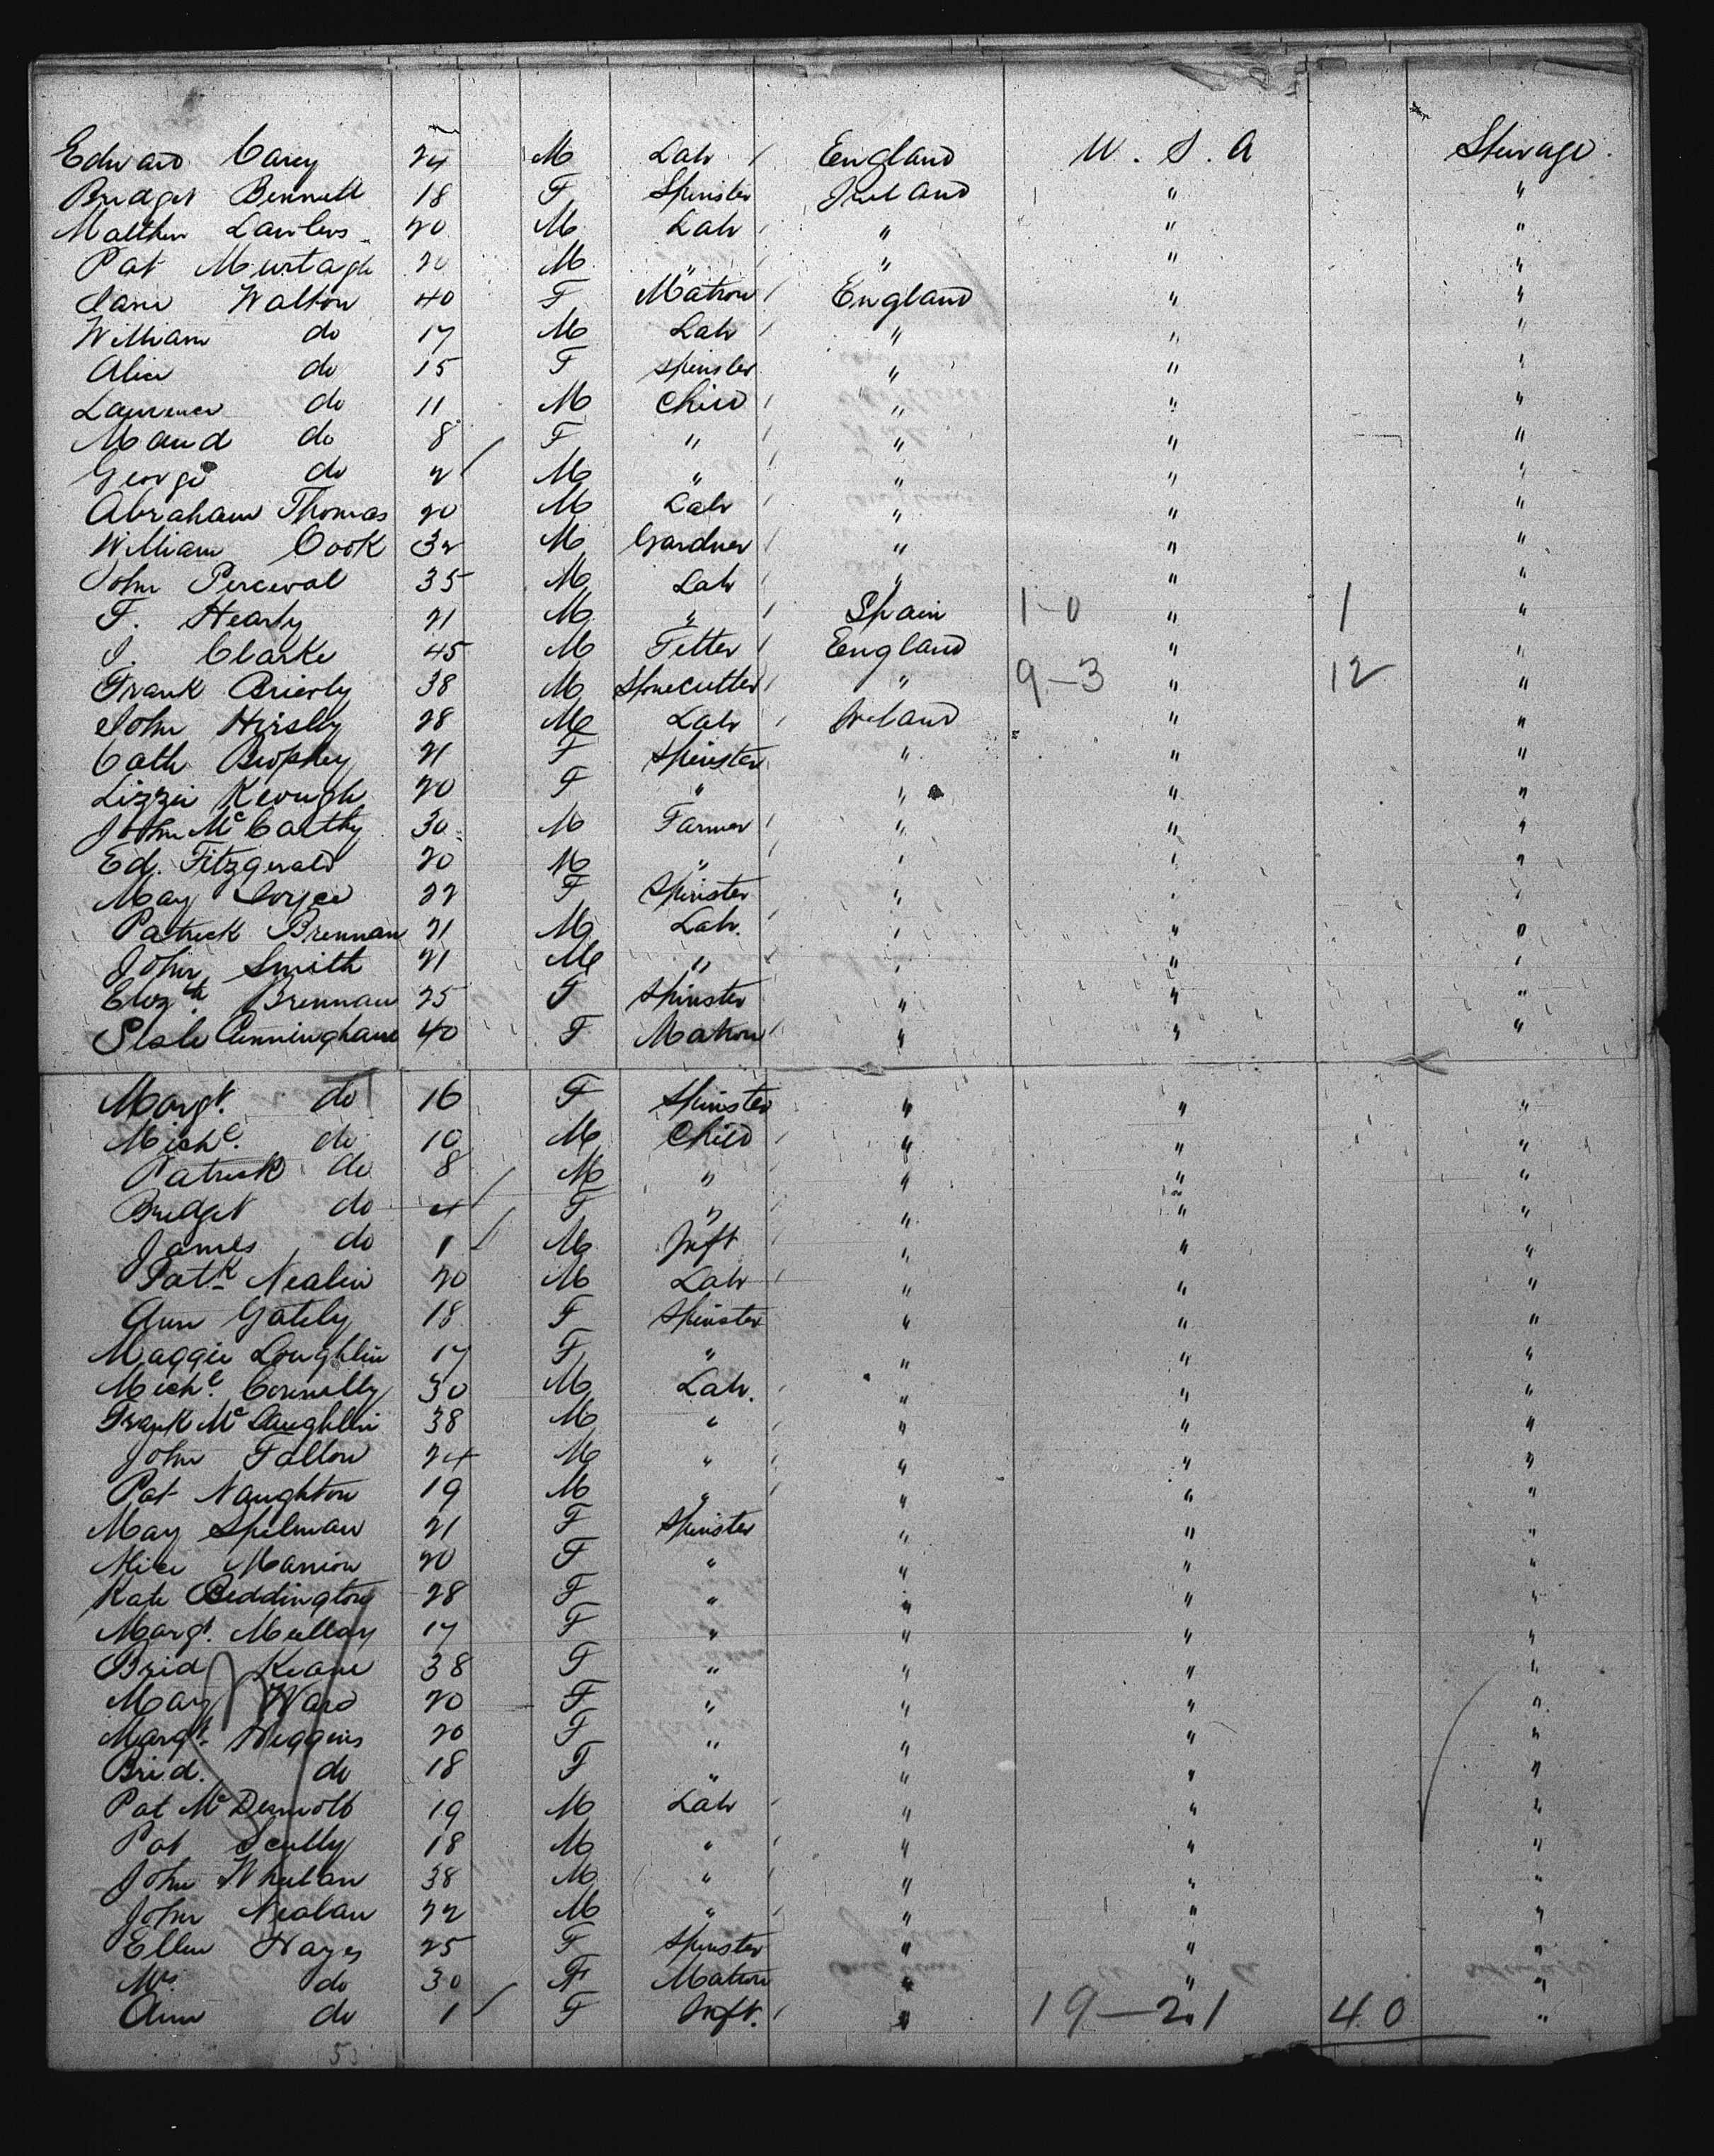 Edward Carey 24 M Labr England U.S.A Steerage.
Bridget Bennett 18 F Spinster Ireland " "
Matthew Lawless 20 M Labr " " "
Pat Murtagh 20 M " " " "
Jane Walton 40 F Matron England " "
William do 17 M Labr " " "
Alice do 15 F Spinster " " "
Laurence do 11 M Child " " "
Maud do 8 F " " " "
George do 2 M " " " "
Abraham Thomas 20 M Labr " " "
William Cook 32 M Gardner " " "
John Perceval 35 M Labr " " "
F. Hearly 21 M " Spain 1-0 " 1 "
J. Clarke 45 M Fitter England " "
Frank Brierly 38 M Stonecutter " 9-3 " 12 "
John Hirsly 28 M Labr Ireland " "
Cath Brophey 21 F Spinster " " "
Lizzie Keough 20 F " " " "
John McCarthy 30 M Farmer " " "
Ed. Fitzgerald 20 M " " " "
May Joyce 22 F Spinster " " "
Patrick Brennan 21 M Labr. " " "
John Smith 21 M " " " "
Elizth Brennan 25 F Spinster " " "
Cunninghame 40 F Matron " " "
Margt. do 16 F Spinster " " "
Michl. do 10 M Child " " "
Patrick do 8 M " " " "
Bridget do 4 F " " " "
James do 1 M Inft " " "
Patk Nealin 20 M Labr " " "
Ann Gately 18 F Spinster " " "
Maggie Loughlin 17 F " " " "
Michl. Connelly 30 M Labr. " " "
Frank McLaughlin 38 M " " " "
John Fallon 24 M " " " "
Pat Naughton 19 M " " " "
May Spelman 21 F Spinster " " "
Alice Mannion 20 F " " " "
Kate Beddington 28 F " " " "
Margt. Mullay 17 F " " " "
Brid Keane 38 F " " " "
May Ward 20 F " " " "
Margt. Higgins 20 F " " " "
Brid. do 18 F " " " "
Pat McDermott 19 M Labr " " "
Pat Scully 18 M " " " "
John Whelan 38 M " " " "
John Nealan 22 M " " " "
Ellen Hayes 25 F Spinster " " "
Mrs do 30 F Matron " " "
Ann do 1 F Inft. " 19-21 " 40 "
53